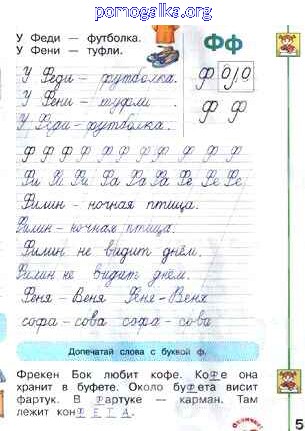 pomogalka.org
У Феди — футболка.
У Фени — туфли.
Фф
У Феди – футболка.
У Фени – туфли.
У Феди – футболка.
Ф Ф Ф Ф Ф Ф Ф Ф Ф Ф Ф
Фи Фи Фи Фа Фа Фа Фе Фе Фе
Филин – ночная птица.
Филин – ночная птица.
Филин не видит днём.
Филин не видит днём.
Феня – Веня Феня – Веня
софа – сова софа – сова
Допечатай слова с буквой ф.
Фрекен Бок любит кофе. Кофе она
хранит в буфете. Около буфета висит
фартук. В фартуке — карман. Там
лежит конФЕТА.
5